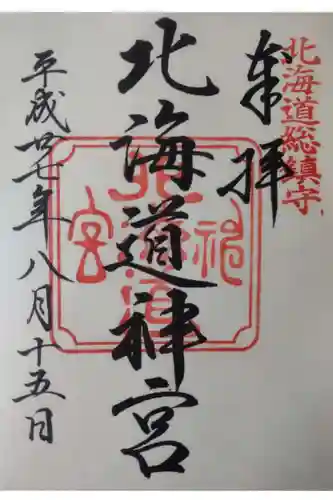 北海道総鎮守
奉拝
北海道神宮
平成廿七年八月十五日
北海道神宮